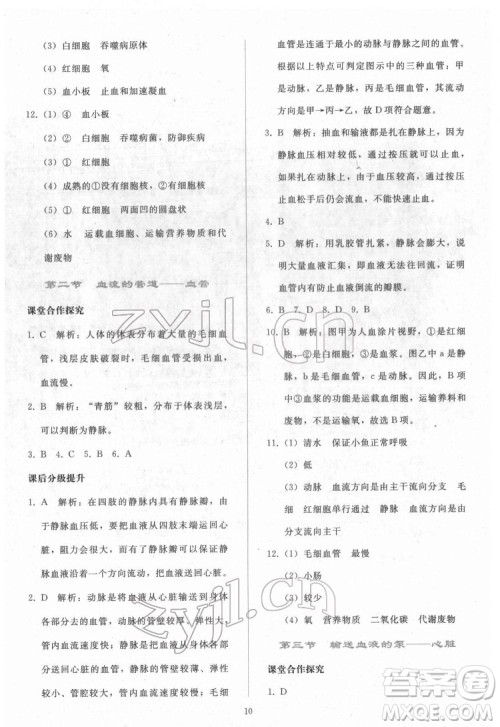 （3）白细胞　吞噬病原体
（4）红细胞　氧
（5）血小板　止血和加速凝血
12.（1）④　血小板
（2）②　白细胞　吞噬病菌，防御疾病
（3）①　红细胞
（4）成熟的①没有细胞核　②有细胞核
（5）①　红细胞　两面凹的圆盘状
（6）水　运载血细胞、运输营养物质和代
谢废物
第二节　血流的管道——血管
课堂合作探究
1. C　解析：人体的体表分布着大量的毛细血
管，浅层皮肤破裂时，毛细血管受损出血，
血流慢。
2. B　解析：“青筋”较粗，分布在体表浅层，
可以判断为静脉。
3. B　4. C　5. B　6. A
课后分级提升
1. A　解析：在四肢的静脉内具有静脉瓣，由
于静脉血压低，四肢的静脉瓣可以保证四肢
静脉血液向一个方向流动，进而流回心脏。
2. D　解析：动脉是输送血液离开心脏的血管，
大多分布在身体较深的部位，管壁厚、弹性
大、管内血流速度快；静脉是输送血液流回
心脏的血管，管壁较薄，弹性较小，管腔大，
管内血流速度较慢，有的位置较深，有的位
置较浅，在体表容易看到；毛细血管数量最
多，分布最广，管壁最薄，只由一层上皮细胞
构成，管内径最小，管内血流速度最慢。毛细
血管是连通于最小的动脉与静脉之间的血管。
因此，题图所示的三种血管中，甲是动
脉，乙是静脉，丙是毛细血管，血液流动的
方向是甲→丙→乙，故 D 项符合题意。
3. B　解析：抽血和输液都是针刺入静脉。由于
静脉血压低，用手压住就可以止血，因此，
在抽血时针刺入静脉后可以松手，而在止
血松手后仍可以保持止血的状态。
4. B
5. D　解析：用乳胶管扎紧，静脉血流不畅，
大量血液汇集于静脉，静脉膨大。隆起的小
包则是防止血液倒流的瓣膜。
6. B　7. B　8. D　9. A
10. B　解析：图甲为人血涂片视野，其中①是
白细胞，②是红细胞，③是血小板；图乙
中 a 是静脉，b 是毛细血管，c 是动脉。发
生炎症时，血液中白细胞的数量会增加；
血浆的主要功能是运载血细胞、营养物质
和废物，不是运输氧，故选 B 项。
11.（1）清水　保证小鱼正常呼吸
（2）B
（3）动脉　血流方向由主干流向分支
（4）毛细血管　红细胞单行通过　静脉
由分支流向主干
12.（1）毛细血管　最慢
（2）小肠
（3）肺
（4）氧　营养物质　二氧化碳　代谢废物
第三节　输送血液的泵——心脏
课堂合作探究
1. D
10
zyjl.cn
zyjl.cn